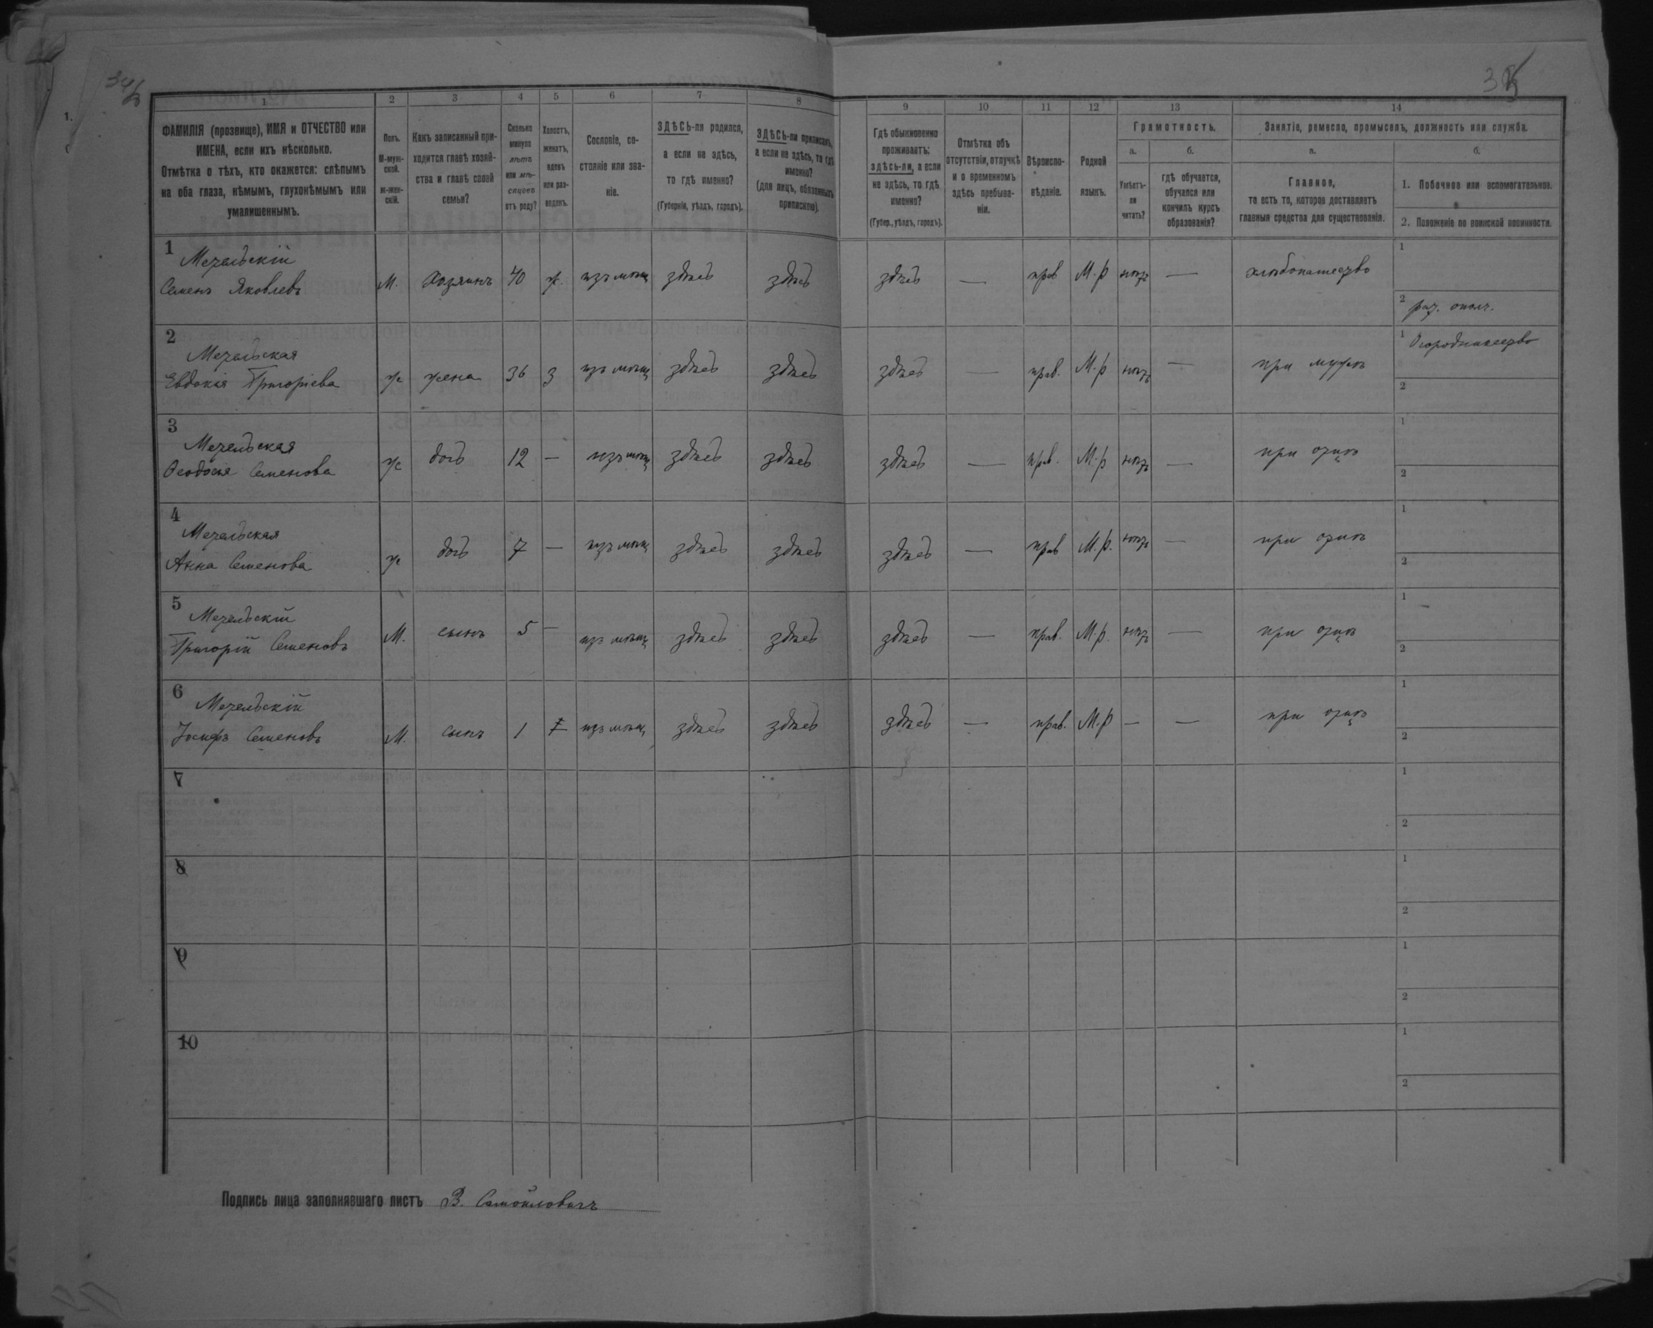 34/3
35
1
2
3
4
5
6
7
8
9
10
11
12
13
14
ФАМИЛІЯ (прозвище), ИМЯ и ОТЧЕСТВО или
ИМЕНА, если ихъ нѣсколько.
Отмѣтка о тѣхъ, кто окажется: слѣпымъ
на оба глаза, нѣмымъ, глухонѣмымъ или
умалишеннымъ.
Полъ.
М-муж-
ской.
ж-жен-
скій.
Какъ записанный при-
ходится главѣ хозяй-
ства и главѣ своей
семьи?
Сколько
минуло
лѣтъ
или мѣ-
сяцевъ
отъ роду?
Холостъ,
женатъ,
вдовъ
или раз-
веденъ.
Сословіе, со-
стояніе или зва-
ніе.
ЗДѢСЬ-ли родился,
а если не здѣсь,
то гдѣ именно?
(Губернія, уѣздъ, городъ).
ЗДѢСЬ-ли приписанъ,
а если не здѣсь, то гдѣ
именно?
(для лицъ, обязанныхъ
припискою).
Гдѣ обыкновенно
проживаетъ:
здѣсь-ли, а если
не здѣсь, то гдѣ
именно?
(Губер., уѣздъ, городъ).
Отмѣтка объ
отсутствіи, отлучкѣ
и о временномъ
здѣсь пребыва-
ніи.
Вѣроиспо-
вѣданіе.
Родной
языкъ.
Грамотность.
а.
Умѣетъ-
ли
читать?
б.
гдѣ обучается,
обучался или
кончилъ курсъ
образованія?
Занятіе, ремесло, промыселъ, должность или служба.
а.
Главное,
то есть то, которое доставляетъ
главныя средства для существованія.
б.
1. Побочное или вспомогательное.
2. Положеніе по воинской повинности.
1
Мечельскій
Семенъ Яковлевъ М. Хозяинъ 40 ж. изъ мѣщ здѣсь здѣсь здѣсь — прав М.р нѣтъ — хлѣбопашество
1
2 рат. опол.
2
Мечельская
Евдокія Григоріева ж жена 36 з изъ мѣщ здѣсь здѣсь здѣсь — прав. М.р нѣтъ — при мужѣ
1 Огородничество
2
3
Мечельская
Ѳеодосія Семенова ж дочь 12 — изъ мѣщ здѣсь здѣсь здѣсь — прав. М.р нѣтъ — при отцѣ
1
2
4
Мечельская
Анна Семенова ж дочь 7 — изъ мѣщ здѣсь здѣсь здѣсь — прав М.р. нѣтъ — при отцѣ
1
2
5
Мечельскій
Григорій Семеновъ М. сынъ 5 — изъ мѣщ здѣсь здѣсь здѣсь — прав. М.р. нѣтъ — при отцѣ
1
2
6
Мечельскій
Іосифъ Семеновъ М. сынъ 1 — изъ мѣщ здѣсь здѣсь здѣсь — прав. М.р — — при отцѣ
1
2
7
1
2
8
1
2
9
1
2
10
1
2
Подпись лица заполнявшаго листъ В. Самойловичъ